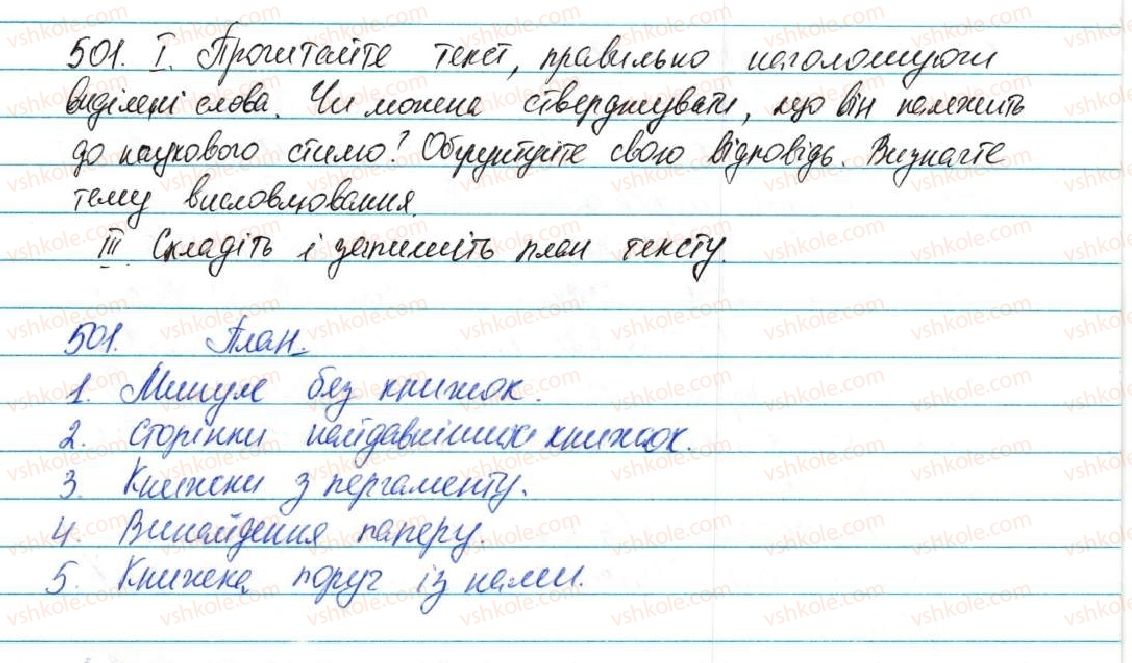 501. I. Прочитайте текст, правильно наголошуючи
виділені слова. Чи можна стверджувати, що він належить
до наукового стилю? Обґрунтуйте свою відповідь. Визначте
тему висловлювання.
III. Складіть і запишіть план тексту.
501. План.
1. Минуле без книжок.
2. Сторінки найдавніших книжок.
3. Книжки з пергаменту.
4. Винайдення паперу.
5. Книжка поруч із нами.
vshkole.com